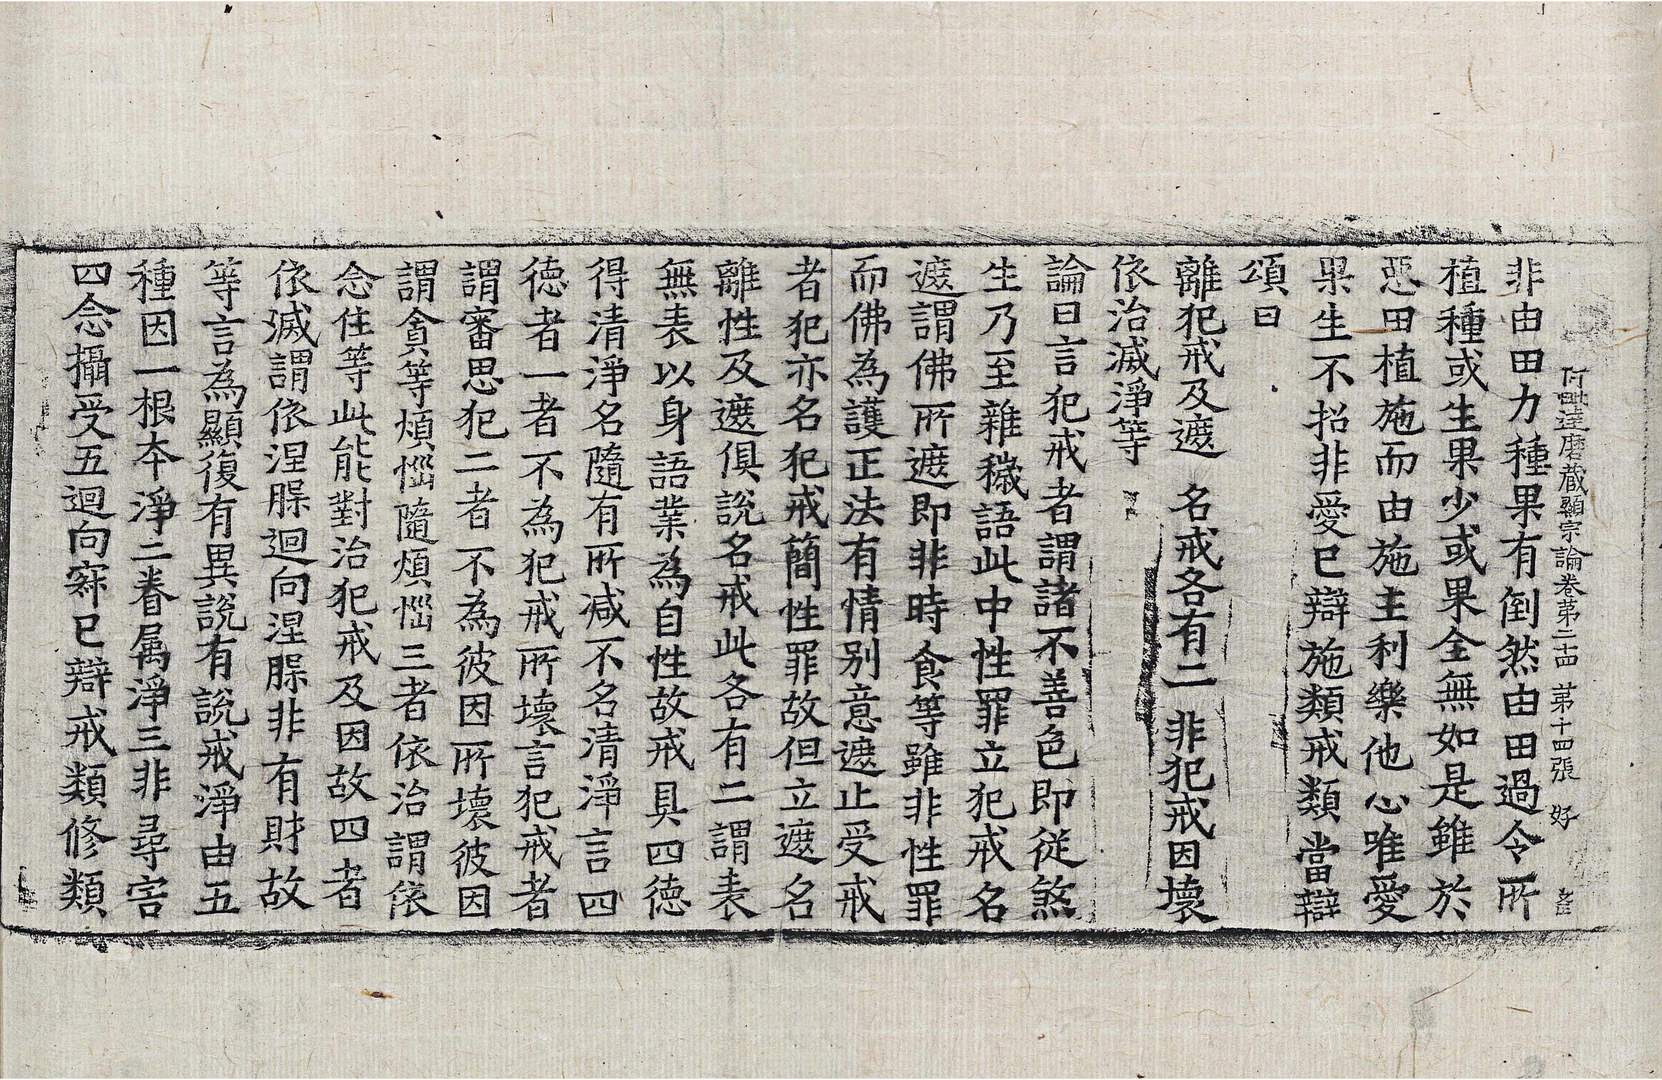 阿毗達磨藏顯宗論卷第二十四 第十四張 好
非由田力種果有倒然由田過令所
植種或生果少或果全無如是雖於
惡田植施而由施主利樂他心唯愛
果生不招非愛已辯施類戒類當辯
頌曰
離犯戒及遮 名戒各有二 非犯戒因壞
依治滅淨等
論曰言犯戒者謂諸不善色即從煞
生乃至雜穢語此中性罪立犯戒名
遮謂佛所遮即非時食等雖非性罪
而佛為護正法有情別意遮止受戒
者犯亦名犯戒簡性罪故但立遮名
離性及遮俱說名戒此各有二謂表
無表以身語業為自性故戒具四德
得清淨名隨有所減不名清淨言四
德者一者不為犯戒所壞言犯戒者
謂審思犯二者不為彼因所壞彼因
謂貪等煩惱隨煩惱三者依治謂依
念住等此能對治犯戒及因故四者
依滅謂依涅槃迴向涅槃非有財故
等言為顯復有異說有說戒淨由五
種因一根本淨二眷属淨三非尋害
四念攝受五迴向寂已辯戒類修類